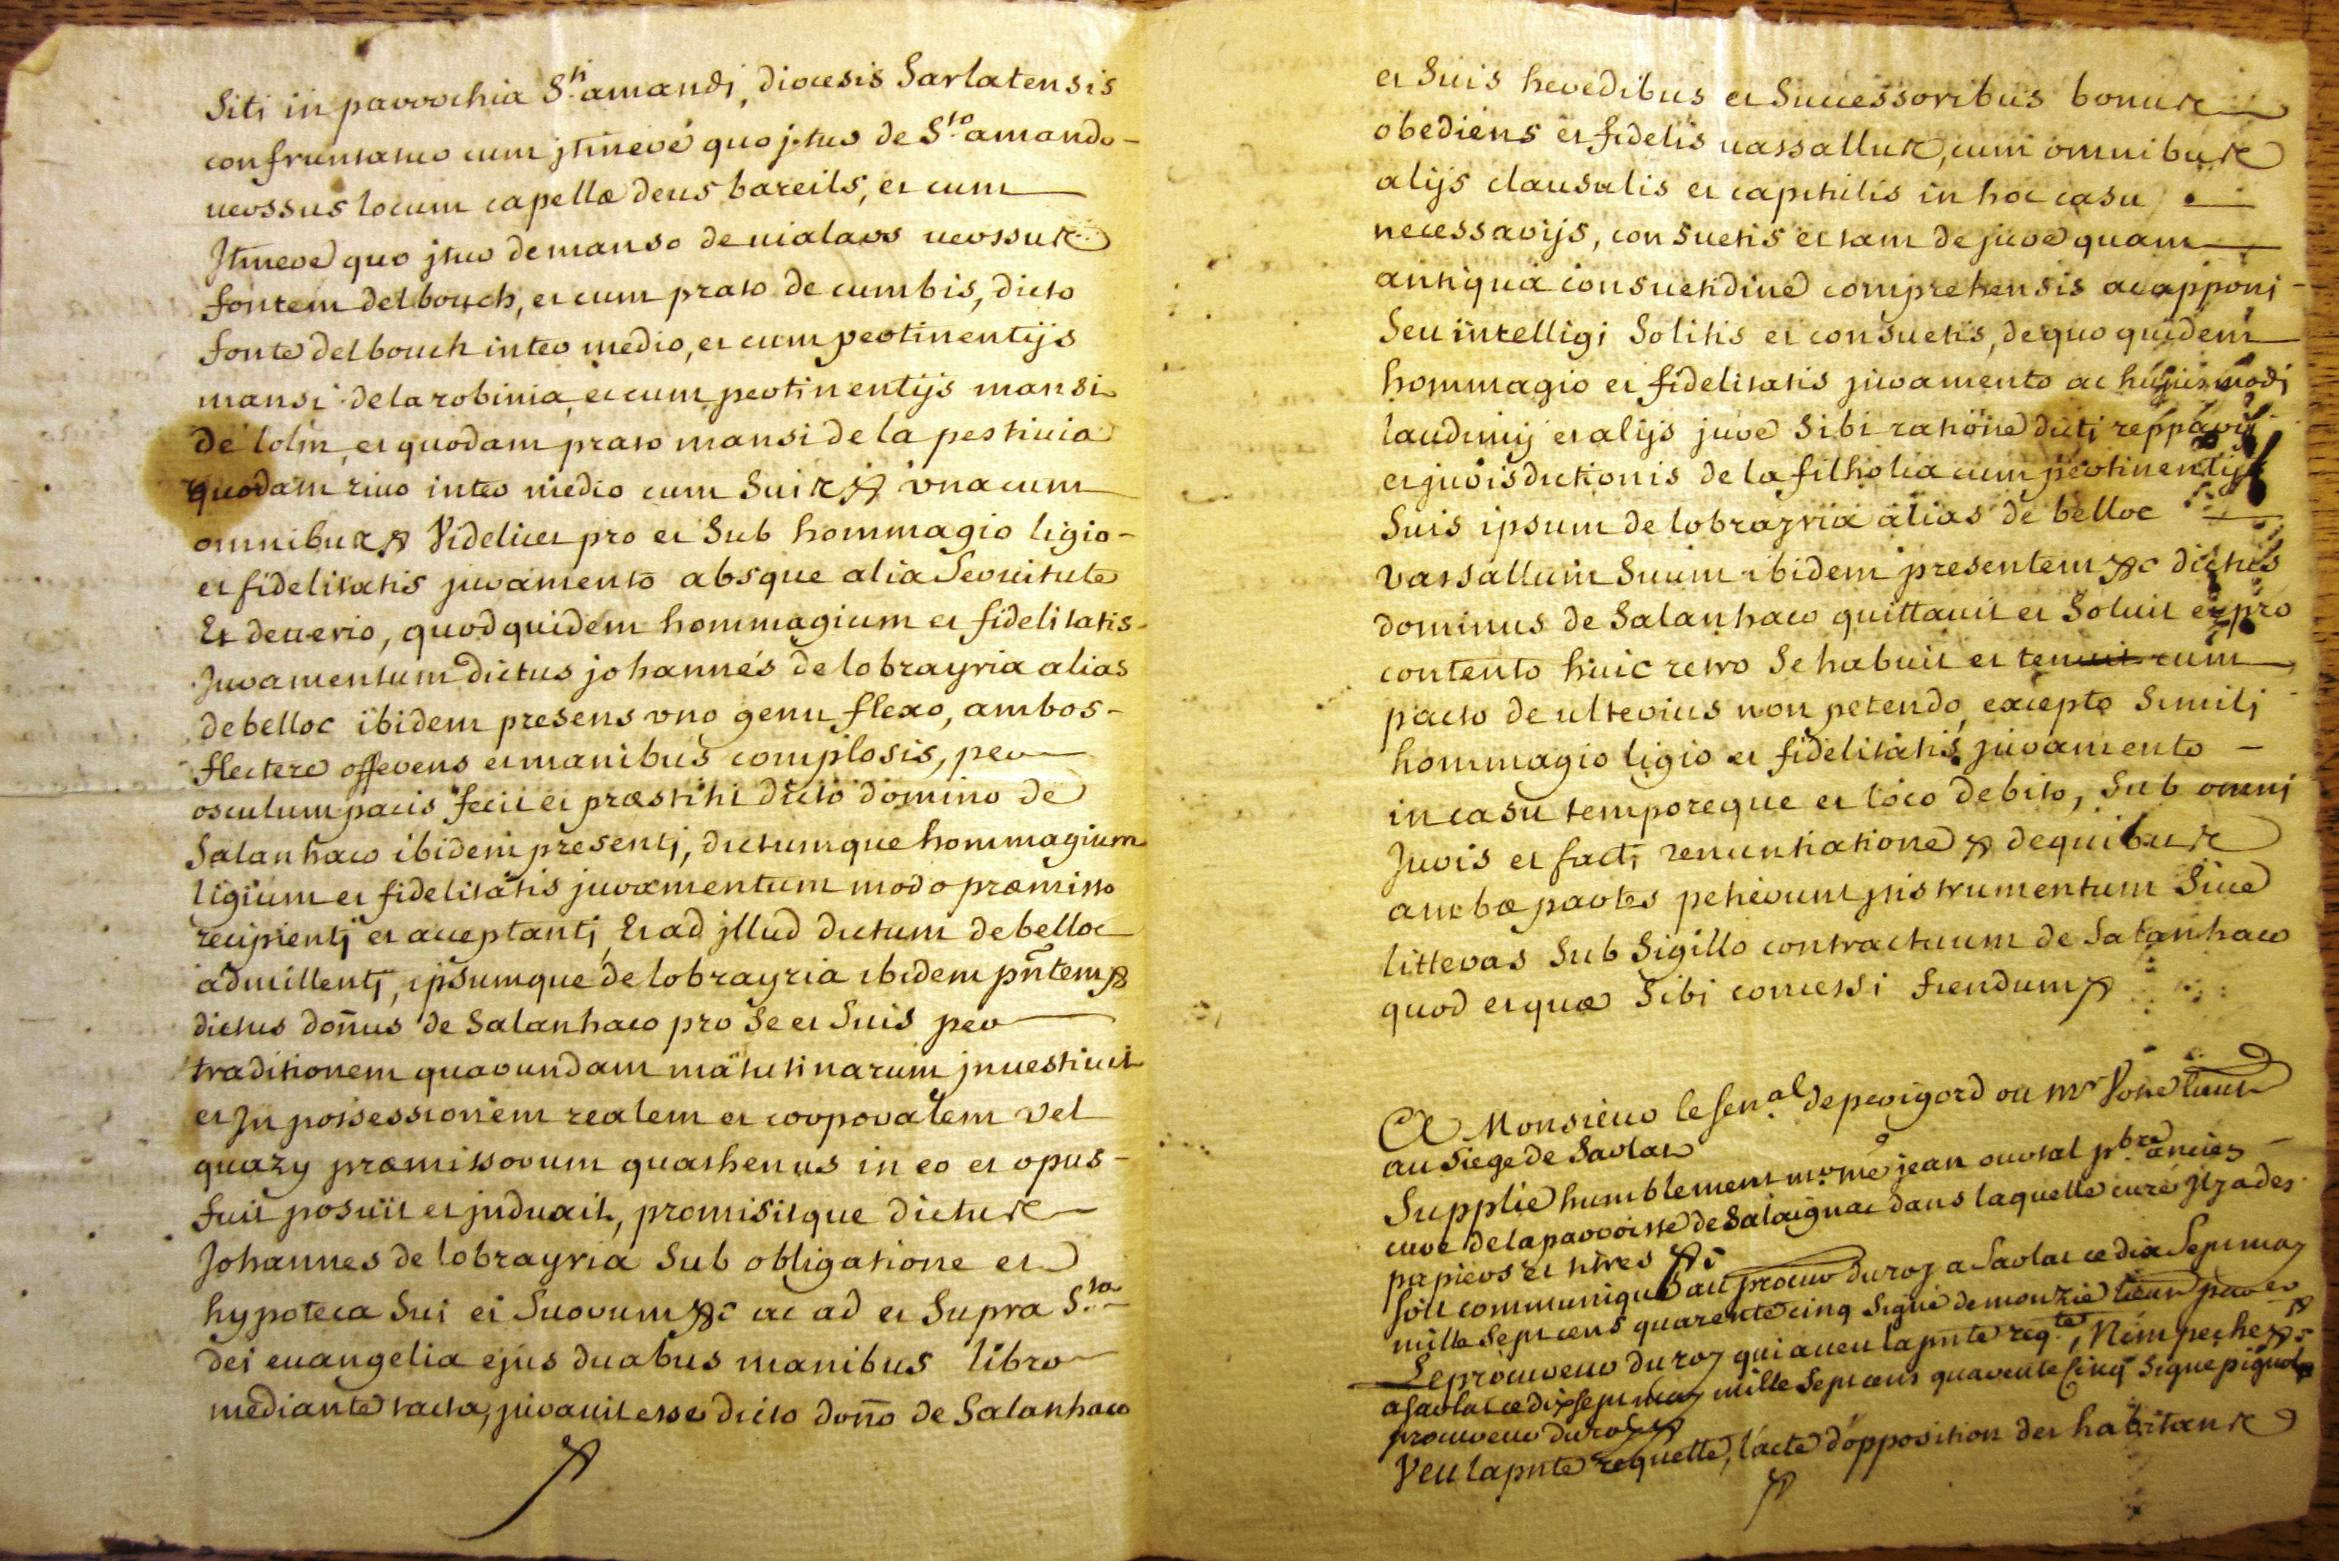 Siti in parrochia S.ti amandj, diocesis Sarlatensis
confruntatur cum jtinere quo jtur de S.to amando -
versus locum capellæ deus bareils, et cum
Jtinere quo jtur de manso de vialars versus
fontem del bouch, et cum prato de cumbis, dicto
fonte del bouch inter medio, et cum pertinentijs
mansi de la robinia, et cum pertinentijs mansi
de lolm, et quodam prato mansi de la pestivia
quodam rivo inter medio cum Suis &c vna cum
omnibus &c Videlicet pro et Sub hommagio ligio -
et fidelitatis juramento absque alia Servitute
Et deverio, quod quidem hommagium et fidelitatis -
Juramentum dictus johannes de lobrayria alias
de belloc ibidem presens vno genu flexo, ambos -
flectere offerens et manibus complosis, per
osculum pacis fecit et præstiti dicto domino de
Salanhaco ibidem presentj, dictumque hommagium
ligium et fidelitatis juramentum modo præmisso
recipientj et acceptantj, Et ad jllud dictum de belloc
admittentj, ipsumque de lobrayria ibidem pñtem &
dictus doñus de Salanhaco pro Se et Suis per
traditionem quarundam matutinarum jnvestivit
et Jn possessionem realem et corporalem vel
quazy præmissorum quathenus in eo et opus -
fuit posuit et jnduxit, promisitque dictus
Johannes de lobrayria Sub obligatione et
hypoteca Sui et Suorum &c ac ad et Supra S.ta
dei euangelia ejus duabus manibus libro
mediante tacta, juravit esse dicto doño de Salanhaco
&
et Suis heredibus et Successoribus bonus
obediens et fidelis vassallus, cum omnibus
alijs clausulis et capitulis in hoc casu
necessarijs, consuetis et tam de jure quam
antiqua consuetudine comprehensis ac apponj -
Seu intelligi Solitis et consuetis, de quo quidem
hommagio et fidelitatis juramento ac hujusmodj
laudimij et alijs jure Sibi ratione dicti reppavrij
et jurisdictionis de la filholia cum pertinentijs
Suis ipsum de lobrayria alias de belloc
vassallum Suum ibidem presentem &c dictus
dominus de Salanhaco quittavit et Soluit et pro
contento huic retro Se habuit et tenuit cum
pacto de ulterius non petendo, excepto Similj
hommagio ligio et fidelitatis juramento -
in casu temporeque et loco debito, Sub omnj
Juris et factj renuntiatione & de quibus
ambæ partes petierunt jnstrumentum Sive
litteras Sub Sigillo contractuum de Salanhaco
quod et quæ Sibi concessi fiendum &
A Monsieur le Sen.al de perigord ou Mr Vone lieut
au Siege de Sarlat
Supplie humblement jean ouvral p.bre ancien -
cure de la parroisse de Salaignac dans laquelle cure jl y a des
papiers et titres &c
Soit communiqué au procur du roy a Sarlat ce dix Sept may
mille Sept cens quarente cinq Signé demonzie lieut
Le procureur du roy qui a veu la pnte reqte, N'empeche &c
a Sarlat ce dix Sept may mille Sept cens quarente Cinq Signe
procureur du roy &
Veu la pnte requette, l'acte d'opposition des habitans
&